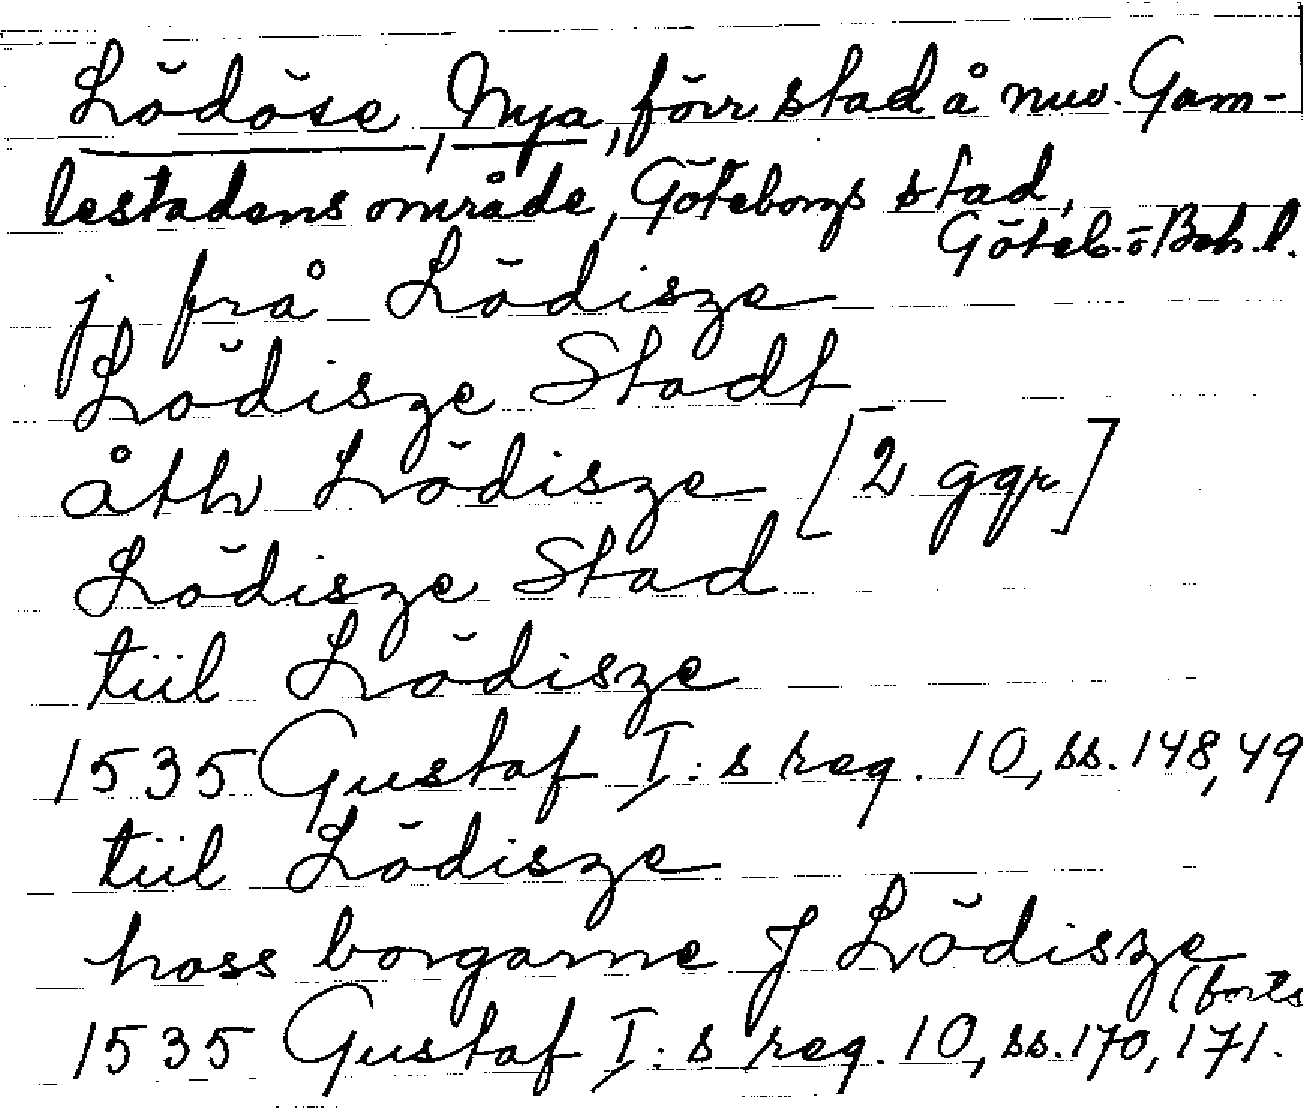 Lödöse, Nya, förr stad å nuv. Gam-
lestadens område, Göteborgs stad,
Göteb. o Boh. l.
j från Lödisze
Lödisze Stadt
åth Lödisze [2 ggr]
Lödisze Stad
tiil Lödisze
1535 Gustaf I:s reg. 10, ss. 148, 49
tiil Lödisze
hoss borgarne J Lödisze
(forts
1535 Gustaf I:s reg. 10, ss. 170, 171.